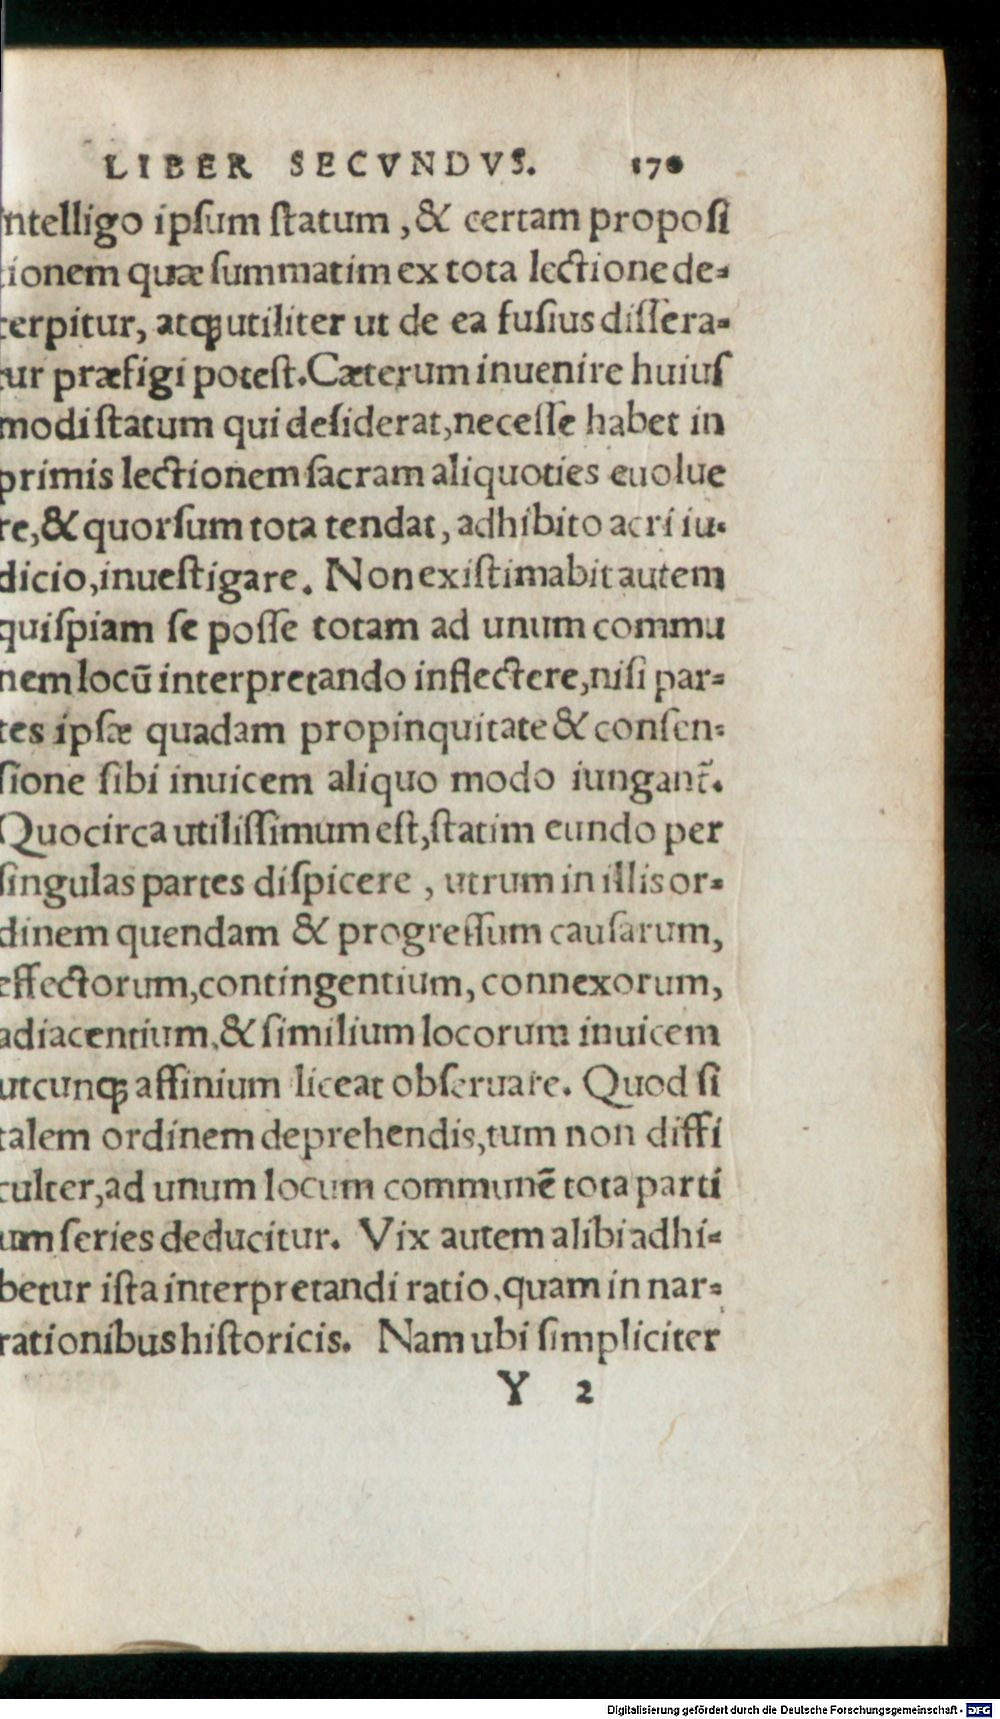 LIBER SECVNDVS. 170
intelligo ipſum ſtatum, & certam propoſi
tionem quæ ſummatim ex tota lectione de-
cerpitur, atq; utiliter ut de ea fuſius diſſera-
tur præfigi poteſt. Cæterum inuenire huiuſ
modi ſtatum qui deſiderat, neceſſe habet in
primis lectionem ſacram aliquoties euolue
re, & quorſum tota tendat, adhibito acri iu-
dicio, inueſtigare. Non exiſtimabit autem
quiſpiam ſe poſſe totam ad unum commu
nem locū interpretando inflectere, niſi par-
tes ipſæ quadam propinquitate & conſen-
ſione ſibi inuicem aliquo modo iungant̃.
Quocirca utiliſſimum eſt, ſtatim eundo per
ſingulas partes diſpicere, utrum in illis or-
dinem quendam & progreſſum cauſarum,
effectorum, contingentium, connexorum,
adiacentium, & ſimilium locorum inuicem
utcunq; affinium liceat obſeruare. Quod ſi
talem ordinem deprehendis, tum non diffi
culter, ad unum locum communē tota parti
um ſeries deducitur. Vix autem alibi adhi-
betur iſta interpretandi ratio, quam in nar-
rationibus hiſtoricis. Nam ubi ſimpliciter
Y 2
Digitalisierung gefördert durch die Deutsche Forschungsgemeinschaft - DFG